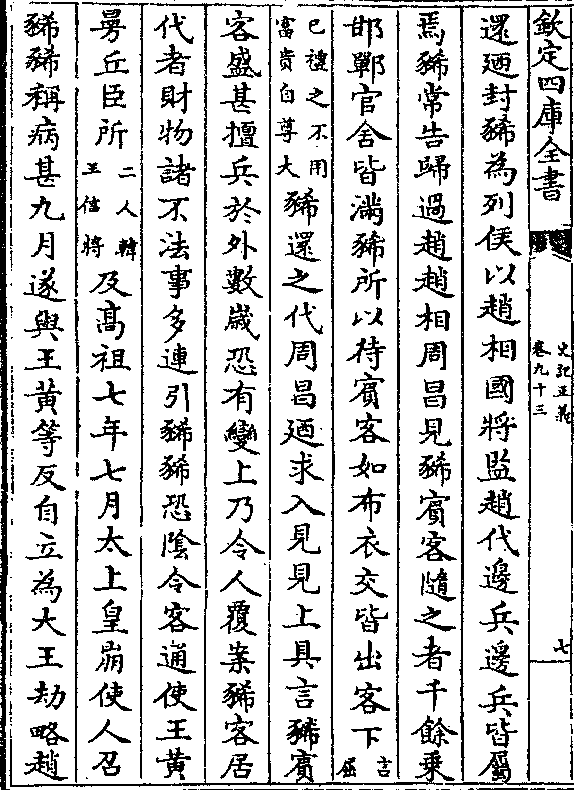 欽定四庫全書
史記正義
卷九十三
七
還廼封豨為列侯以趙相國將監趙代邊兵邊兵皆屬
焉豨常告歸過趙趙相周昌見豨賓客隨之者千餘乗
邯鄲官舍皆滿豨所以待賓客如布衣交皆出客下言屈
已禮之不用富貴自尊大豨還之代周昌廼求入見見上具言豨賓
客盛甚擅兵於外數嵗恐有變上乃令人覆案豨客居
代者財物諸不法事多連引豨豨恐隂令客通使王黄
曼丘臣所二人韓王信將及髙祖七年七月太上皇崩使人召
豨豨稱病甚九月遂與王黄等反自立為大王劫略趙